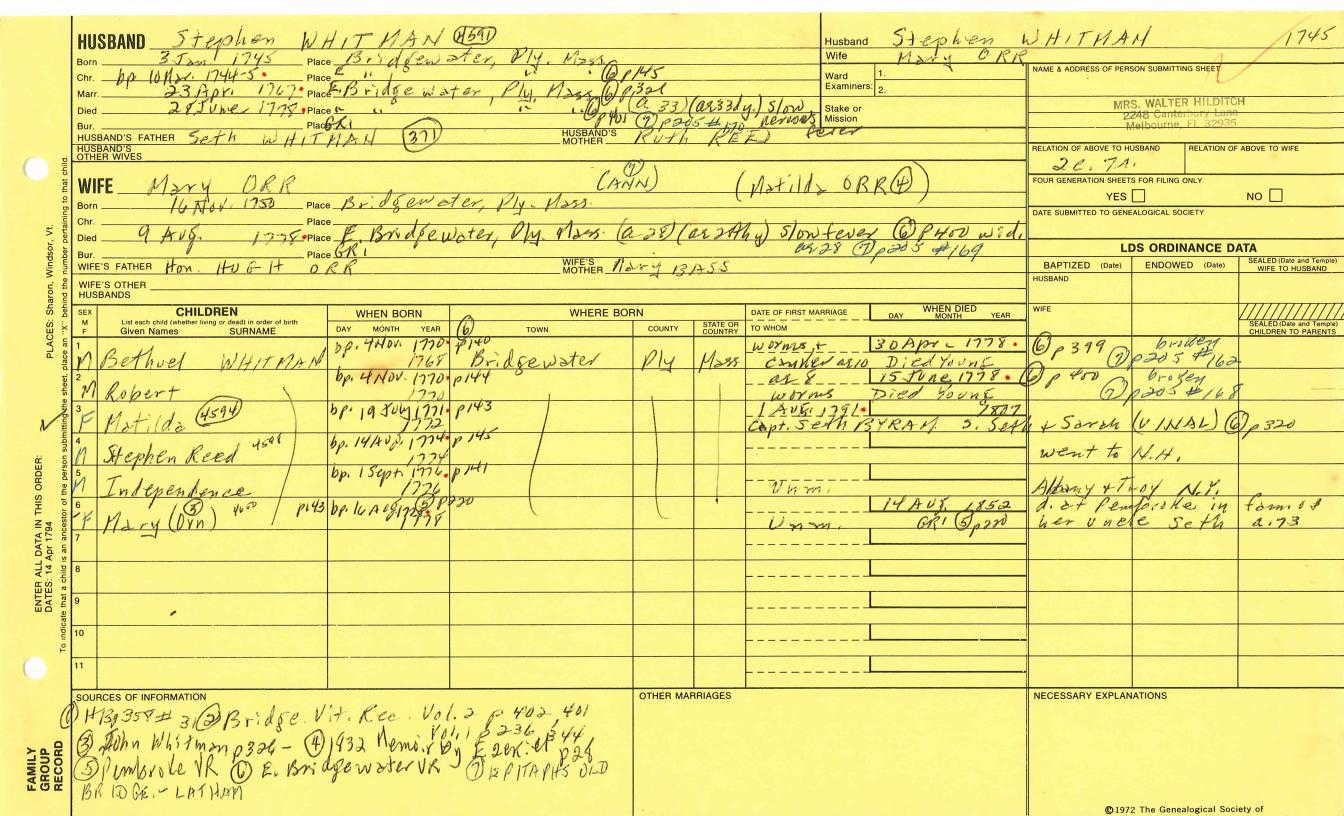 HUSBAND Stephen WHITMAN 4591
Born 3 Jan 1745 Place Bridgewater, Ply. Mass.
Chr. bp 10 Mar. 1744-5 Place E " " " ⑥ p145
Marr. 23 Apri 1767 Place E. Bridgewater, Ply. Mass ⑥ p321
Died 28 June 1778 Place " " " ⑥ p401 (a 33) (ae 33 dy.) slow nervous fever
Bur. Place GR1 ⑦ p205 #170
HUSBAND'S FATHER Seth WHITMAN 371 HUSBAND'S MOTHER Ruth REED
HUSBAND'S OTHER WIVES
WIFE Mary ORR (ANN) ⑦ (Matilda ORR ④)
Born 16 Nov. 1750 Place Bridgewater, Ply. Mass.
Chr. Place
Died 9 Aug. 1778 Place E. Bridgewater, Ply. Mass. (a 28) slow fever ⑥ p400 wid.
Bur. Place GR1 ae 28 ⑦ p205 #169
WIFE'S FATHER Hon. HUGH ORR WIFE'S MOTHER Mary BASS
WIFE'S OTHER HUSBANDS
Husband Stephen WHITMAN 1745
Wife Mary ORR
Ward Examiners: 1.
2.
Stake or Mission
NAME & ADDRESS OF PERSON SUBMITTING SHEET
MRS. WALTER HILDITCH
2248 Canterbury Lane
Melbourne, FL 32935
RELATION OF ABOVE TO HUSBAND RELATION OF ABOVE TO WIFE
2c. 7r.
FOUR GENERATION SHEETS FOR FILING ONLY
YES NO
DATE SUBMITTED TO GENEALOGICAL SOCIETY
LDS ORDINANCE DATA
BAPTIZED (Date) ENDOWED (Date) SEALED (Date and Temple) WIFE TO HUSBAND
HUSBAND
WIFE
SEALED (Date and Temple) CHILDREN TO PARENTS
SEX M F
CHILDREN
List each child (whether living or dead) in order of birth
Given Names SURNAME
WHEN BORN
DAY MONTH YEAR
WHERE BORN
⑥ TOWN COUNTY STATE OR COUNTRY
DATE OF FIRST MARRIAGE
TO WHOM
WHEN DIED
DAY MONTH YEAR
1 bp. 4 Nov. 1770 p140 worms + 30 Apr 1778 ⑥ p399
M Bethuel WHITMAN 1768 Bridgewater Ply Mass canker ae 10 Died Young ⑦ p205 #162
2 bp. 4 Nov. 1770 p144 ae 8 15 June 1778 ⑥ p400
M Robert 1770 worms Died Young ⑦ p205 #168
3 bp. 19 July 1771 p143 1 Aug. 1791
F Matilda 4594 1772 Capt. Seth BYRAM s. Seth & Sarah (VINAL) ⑥ p320
4 bp. 14 Aug. 1774 p145
M Stephen Reed 1774 went to N.H.
5 bp. 1 Sept. 1776 p141
M Independence 1776 Unm. Albany & Troy N.Y.
6 p143 bp. 16 Aug 1778 ⑤ p220 14 Aug. 1852 d. at Pembroke in fam of
F Mary (Orn) ⑤ 4600 1778 Unm. GR1 ⑤ p220 her uncle Seth a.73
7
8
9
10
11
SOURCES OF INFORMATION
① HBg 358 # 31 ② Bridge. Vit. Rec. Vol. 2 p 402, 401
Vol. 1 p 236, 344
③ John Whitman p326 - ④ 1832 Memoir by Ezekiel p28
⑤ Pembroke VR ⑥ E. Bridgewater VR ⑦ EPITAPHS OLD
BRIDGE. - LATHAM
OTHER MARRIAGES
NECESSARY EXPLANATIONS
©1972 The Genealogical Society of
ENTER ALL DATA IN THIS ORDER:
DATES: 14 Apr 1794
PLACES: Sharon, Windsor, Vt.
To indicate that a child is an ancestor of the person submitting the sheet, place an "X" behind the number pertaining to that child.
FAMILY GROUP RECORD